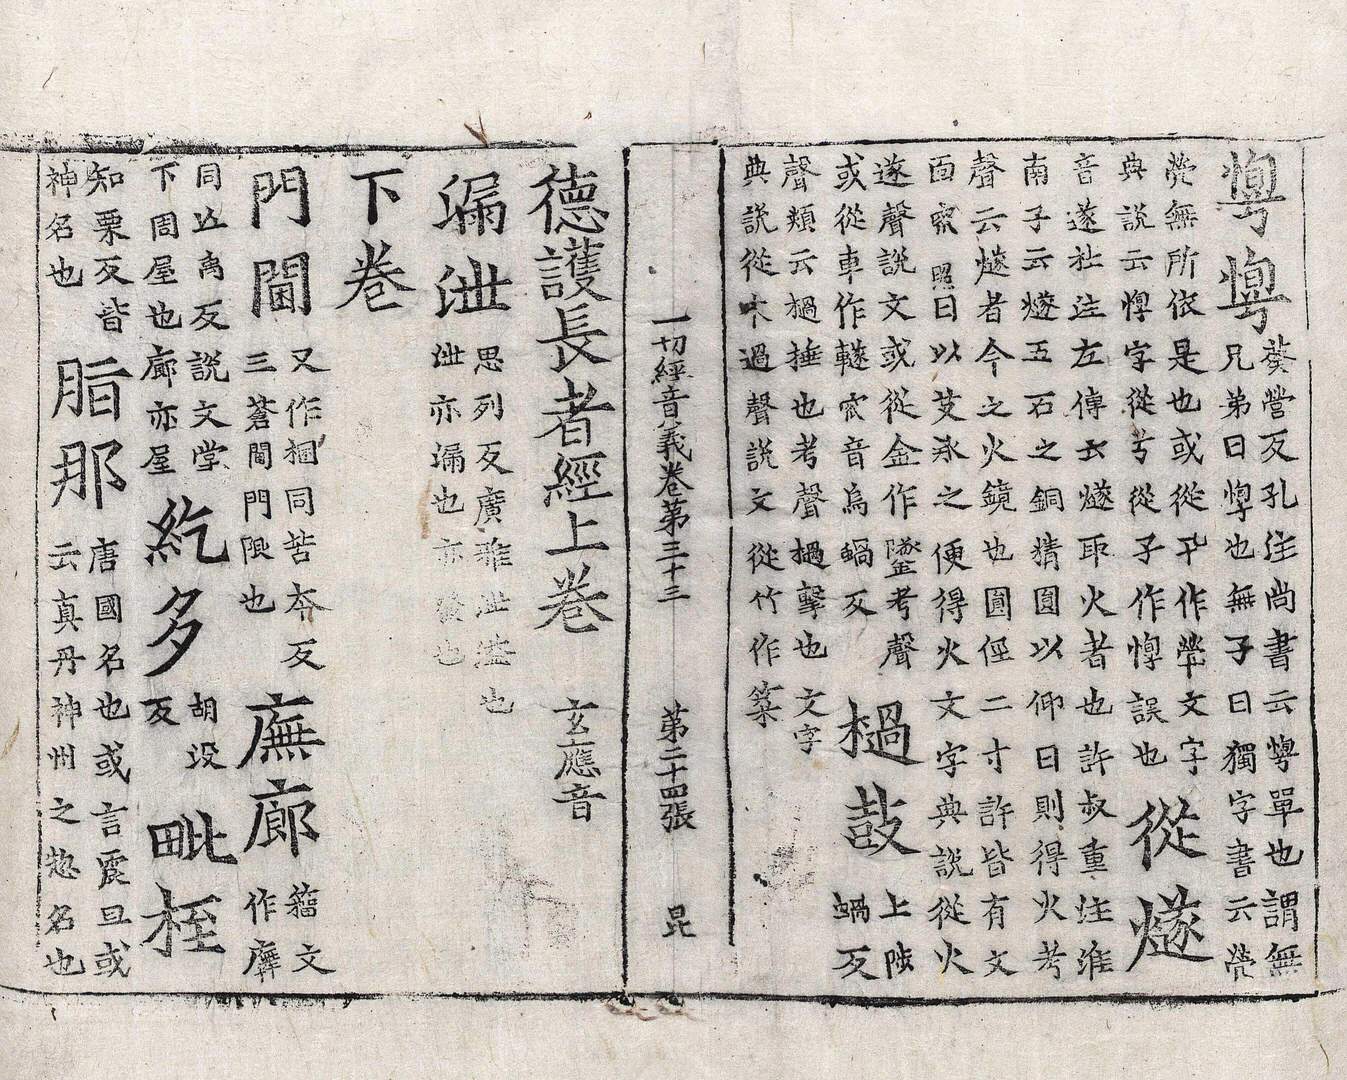 惸惸
葵營反孔注尚書云惸單也謂無
兄弟曰惸也無子曰獨字書云煢
煢無所依是也或從卂作煢文字
典說云惸字從兮從子作惸誤也
從燧
音遂杜注左傳云燧取火者也許叔重注淮
南子云燧五石之銅精圓以仰日則得火考
聲云燧者今之火鏡也圓徑二寸許皆有文
面察照日以艾承之便得火文字典說從火
遂聲說文或從金作鐆考聲
或從車作𨎩宓音烏蝸反
檛鼓
上陟
蝸反
聲類云檛捶也考聲檛擊也文字
典說從木過聲說文從竹作築
一切經音義卷第三十三 第二十四張 昆
德護長者經上卷 玄應音
漏泄
思列反廣雅泄溢也
泄亦漏也亦發也
下卷
門閫
又作梱同苦夲反
三蒼閫門限也
廡廊
籀文
作㢝
同亡禹反說文堂
下周屋也廊亦屋
紇多
胡沒
反
毗桎
知栗反皆
神名也
脂那
唐國名也或言震旦或
云真丹神州之惣名也